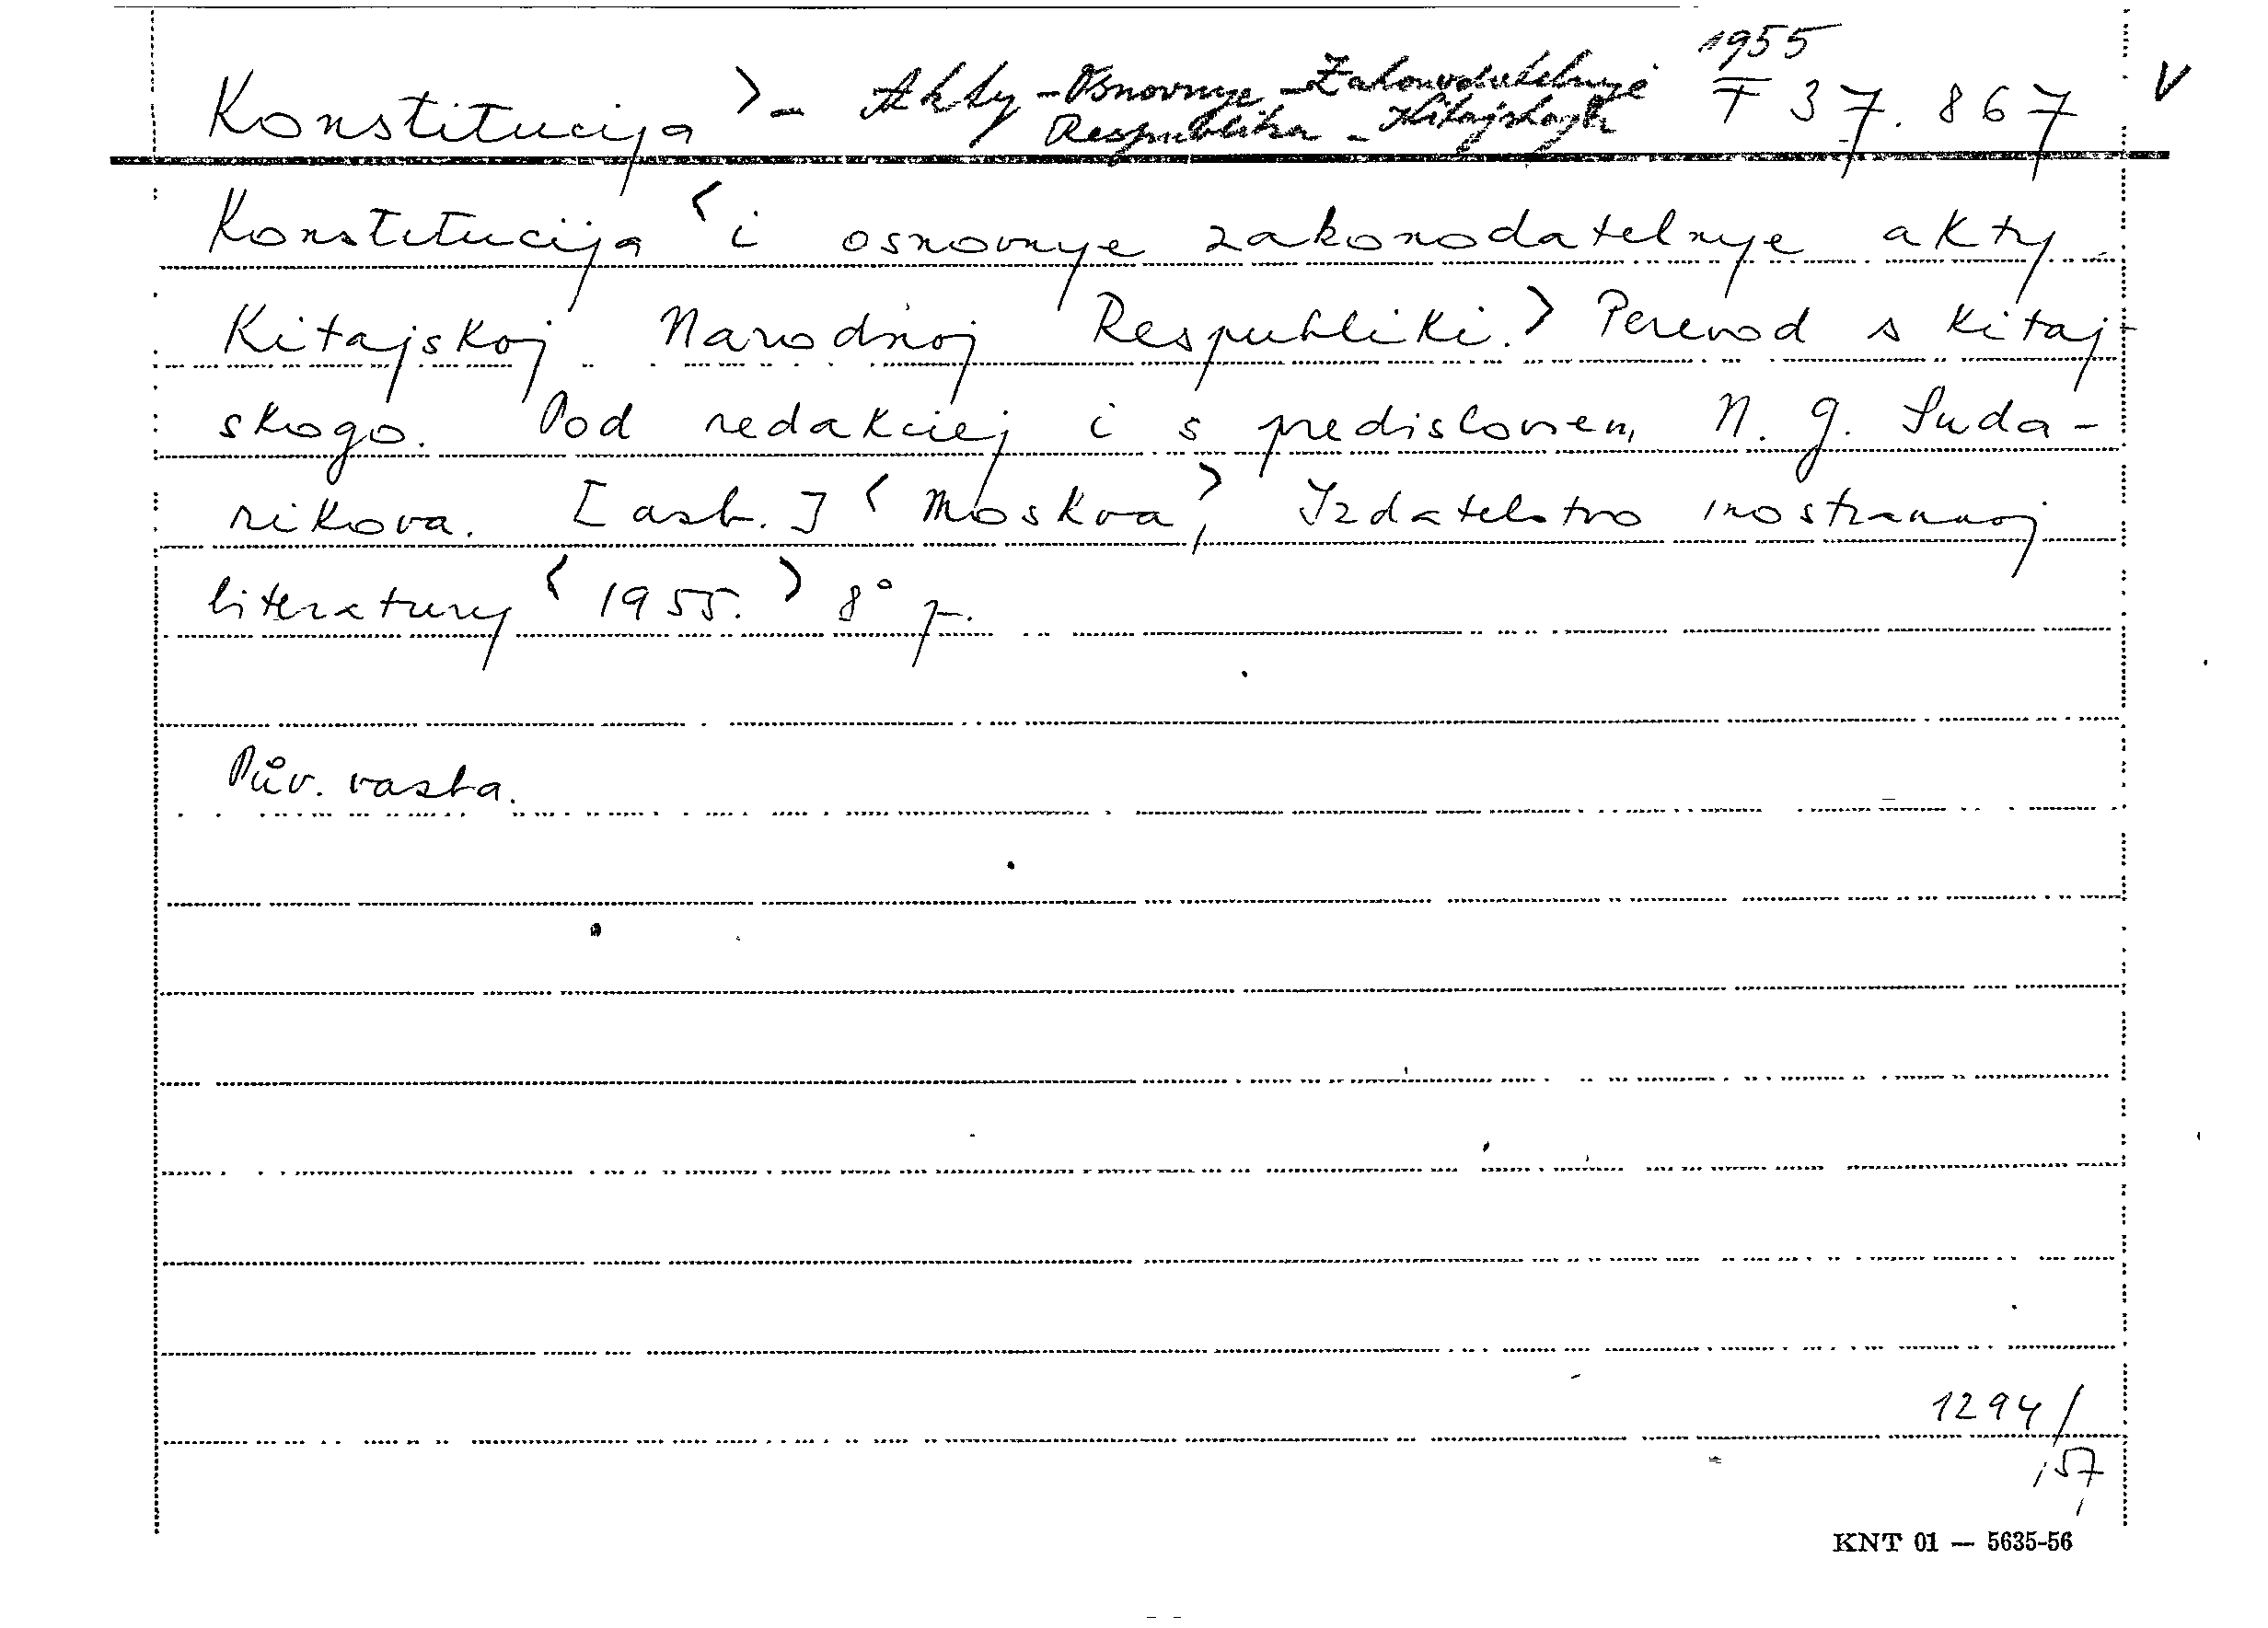 1955
Konstitucija > - Akty - Osnovnye - Zakonodatelnyje T 37.867 V
Respublika - Kitajskaja
Konstitucija < i osnovnye zakonodatelnye akty
Kitajskoj Narodnoj Respubliki. > Perevod s kitaj-
skogo. Pod redakciej i s predislovien, N. G. Suda-
rikova. [ast.] < Moskva, > Izdatelstvo inostrannoj
literatury < 1955. > 8° p.
Pův. vazba.
1294/
57
KNT 01 — 5635-56